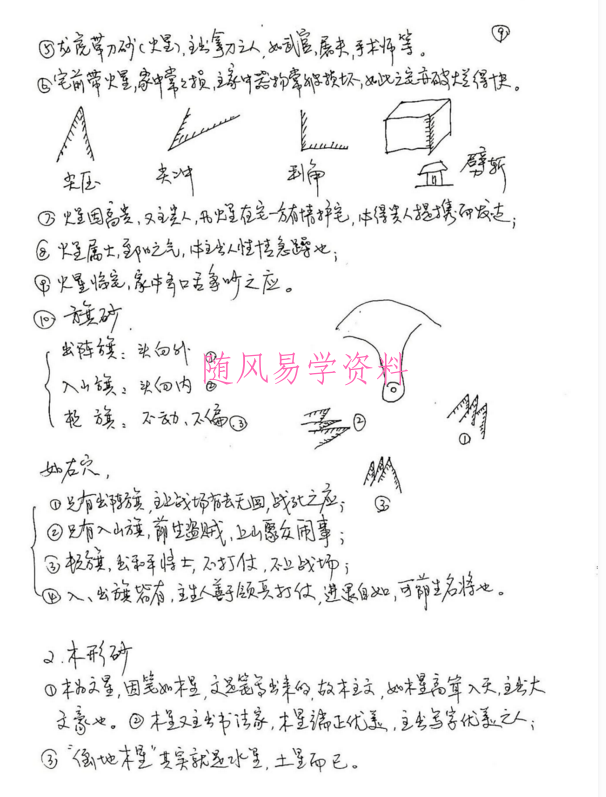 ⑨
⑤龙虎带刀砂(火星),主出拿刀之人,如武官,屠夫,手术师等。
⑥宅前带火星,家中常之损,主家中器物常损坏,如此之宅亦破
尖压 尖冲 到角 劈斩
⑦火星因高贵,又主贵人,在宅一方有情拜宅,得贵人提携而发达;
⑧火星属土,至阳之气,主出人性情急躁也;
⑨火星临宅,家中多口舌争吵之应。
⑩旗砂
出阵旗:头向外 ①
入山旗:头向内 ②
随风易学资料
旗:不动,不偏 ③
②
①
如左穴,
③
①只有出阵旗,主上战场有去无回,战死之应;
②只有入山旗,前生盗贼,上山聚众闹事;
③旗,出和平将士,不打仗,不上战场;
④入、出旗皆有,主生人善于领兵打仗,进退自如,可前生名将也。
2.木形砂
①木为文星,因笔如木星,文是笔写出来的,故木主文,如木星高耸入天,主出大
文豪也。②木星又主出书法家,木星端正优美,主出写字优美之人;
③“倒地木星”其实就是水星,土星而已。